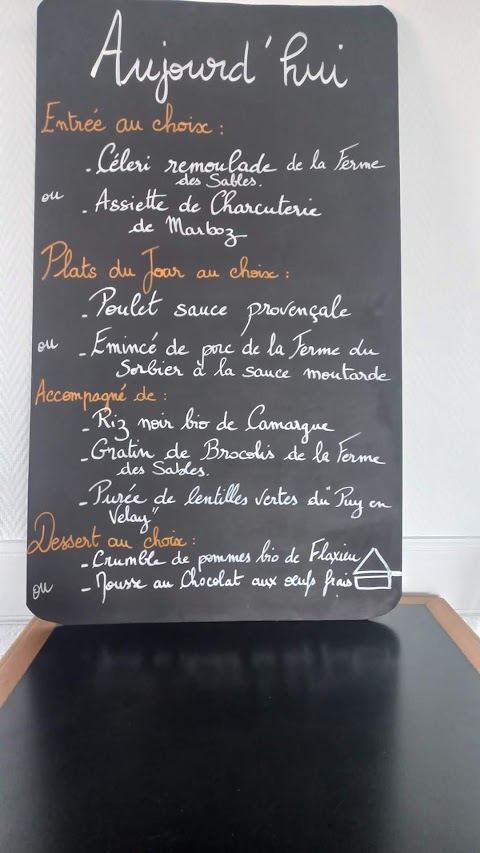 Aujourd'hui
Entrée au choix :
- Céleri remoulade de la Ferme
des Sables.
ou
- Assiette de Charcuterie
de Marboz
Plats du Jour au choix :
- Poulet sauce provençale
ou
- Emincé de porc de la Ferme du
Sorbier à la sauce moutarde
Accompagné de :
- Riz noir bio de Camargue
- Gratin de Brocolis de la Ferme
des Sables.
- Purée de lentilles vertes du "Puy en
Velay"
Dessert au choix :
- Crumble de pommes bio de Flaxieu
ou
- Mousse au Chocolat aux oeufs frais